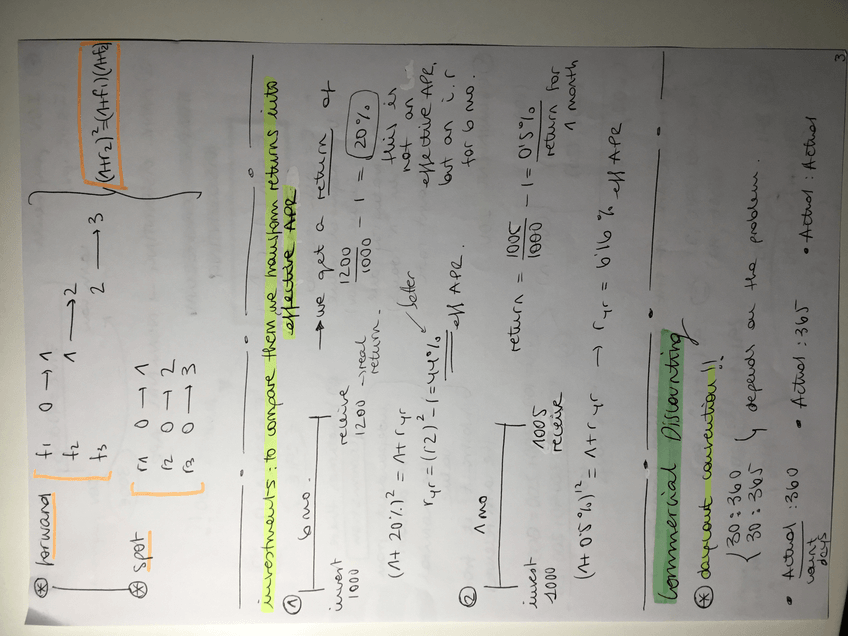 * forward
f1 0 → 1
f2 1 → 2
f3 2 → 3
* spot
r1 0 → 1
r2 0 → 2
r3 0 → 3
(1+r2)² = (1+f1)(1+f2)
investments: to compare them we transform returns into
effective APR
① 6 mo.
invest
1000
receive
1200 → real
return.
→ we get a return of
1200/1000 - 1 = 20%
this is
not an
effective APR,
but an i.r
for 6 mo.
(1+20%)² = 1+r yr
better
r yr = (1'2)² - 1 = 44%
eff APR.
② 1 mo
invest
1000
1005
receive
return = 1005/1000 - 1 = 0'5%
return for
1 month
(1+0'5%)¹² = 1+r yr → r yr = 6'16% eff APR
Commercial Discounting
* daycount convention!!
30:360
30:365
depends on the problem.
• Actual :360 • Actual :365 • Actual : Actual
count
days
3